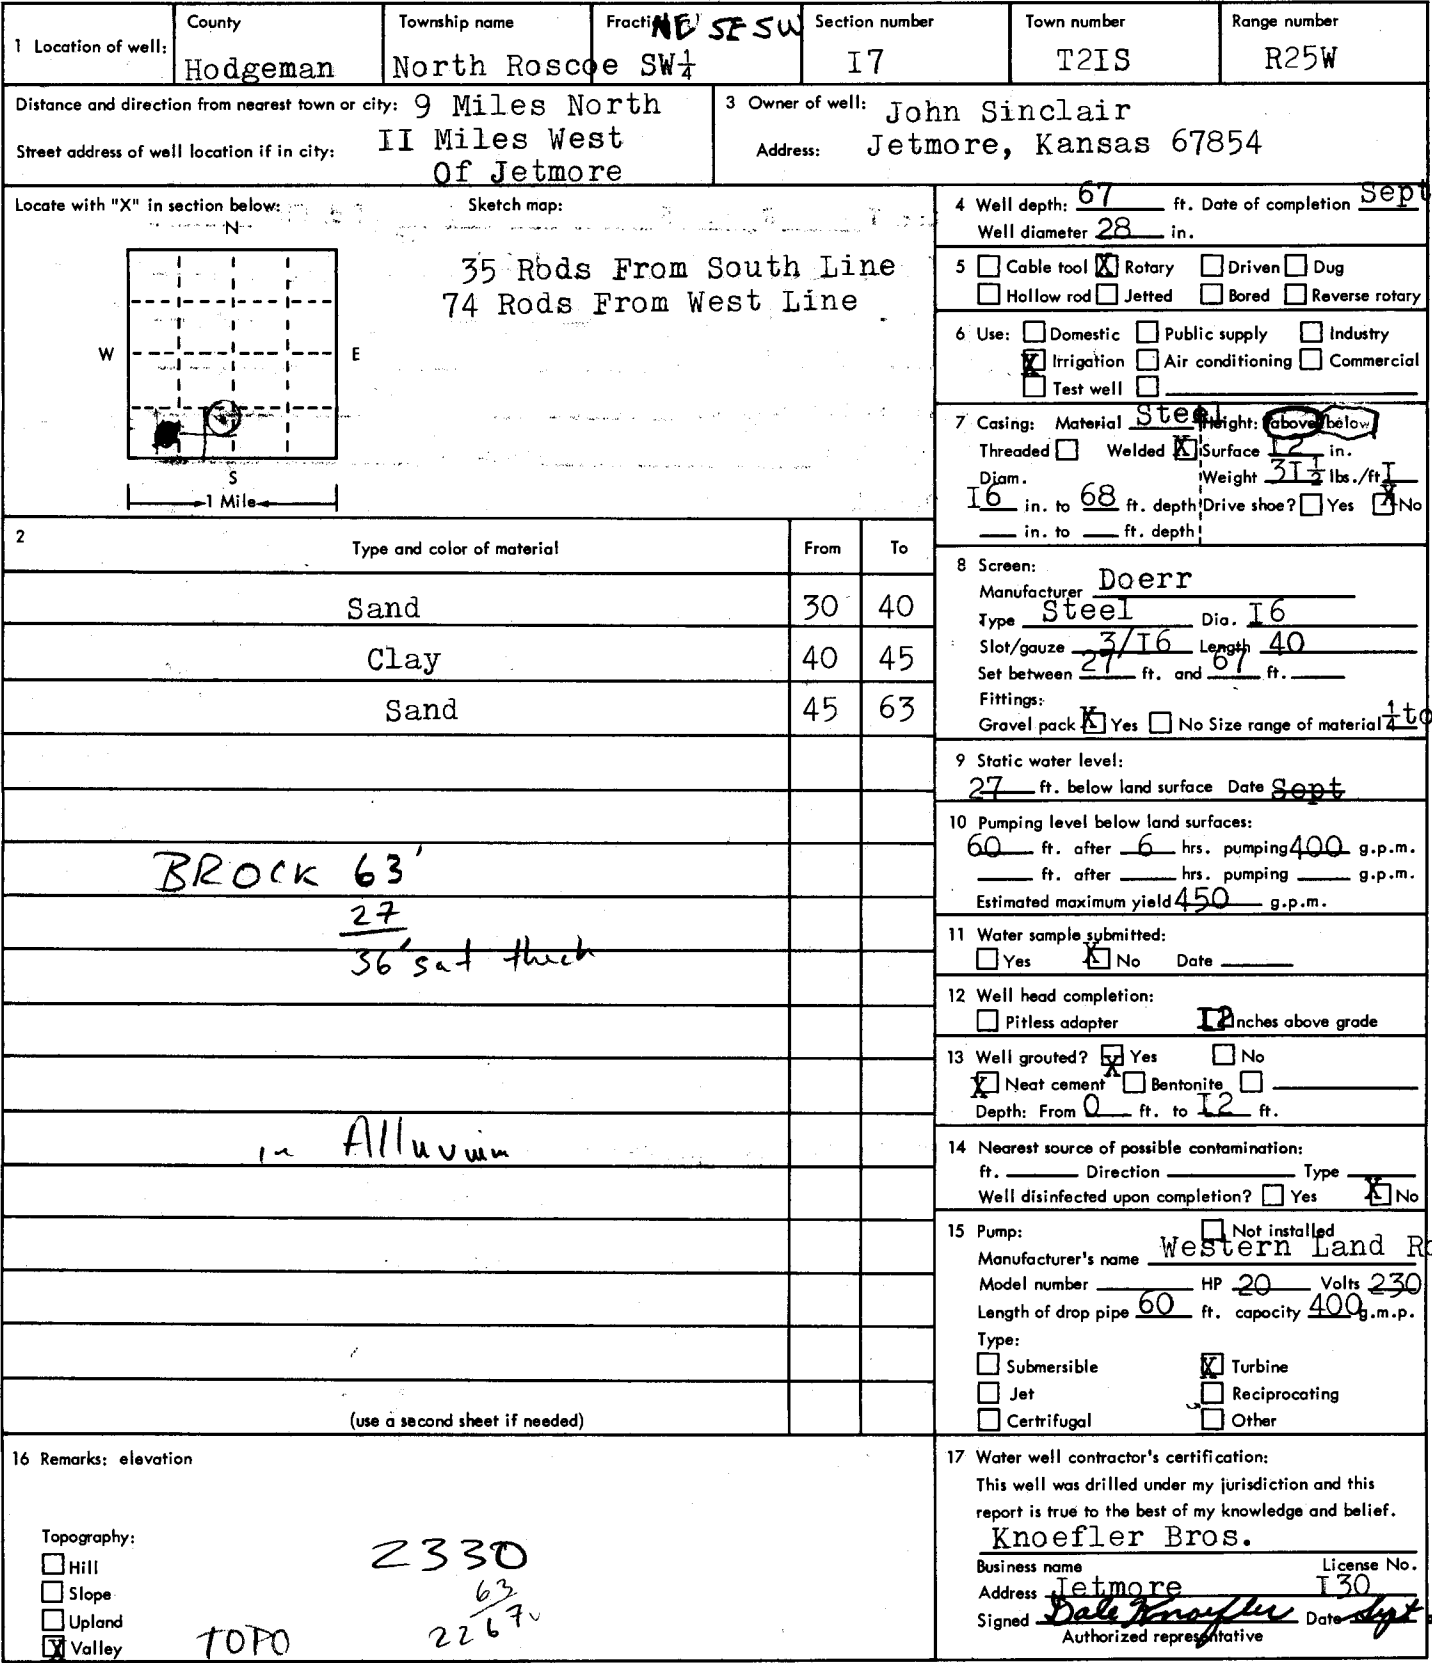 1 Location of well:
County
Hodgeman
Township name
North Roscoe
Fraction NE SE SW
SW 1/4
Section number
I7
Town number
T2IS
Range number
R25W
Distance and direction from nearest town or city: 9 Miles North
II Miles West
Street address of well location if in city:
Of Jetmore
3 Owner of well: John Sinclair
Address: Jetmore, Kansas 67854
Locate with "X" in section below:
Sketch map:
N
W
E
S
1 Mile
35 Rods From South Line
74 Rods From West Line
4 Well depth: 67 ft. Date of completion Sept
Well diameter 28 in.
5 ☐ Cable tool ☒ Rotary ☐ Driven ☐ Dug
☐ Hollow rod ☐ Jetted ☐ Bored ☐ Reverse rotary
6 Use: ☐ Domestic ☐ Public supply ☐ Industry
☒ Irrigation ☐ Air conditioning ☐ Commercial
☐ Test well ☐
7 Casing: Material Steel Height: above/below
Threaded ☐ Welded ☒ Surface I2 in.
Diam. Weight 3I 1/2 lbs./ft
I6 in. to 68 ft. depth Drive shoe? ☐ Yes ☒ No
in. to ft. depth
2 Type and color of material From To
Sand 30 40
Clay 40 45
Sand 45 63
BROCK 63'
27
36' sat thick
in Alluvium
(use a second sheet if needed)
8 Screen:
Manufacturer Doerr
Type Steel Dia. I6
Slot/gauze 3/I6 Length 40
Set between 27 ft. and 67 ft.
Fittings:
Gravel pack ☒ Yes ☐ No Size range of material 1/4 to
9 Static water level:
27 ft. below land surface Date Sept
10 Pumping level below land surfaces:
60 ft. after 6 hrs. pumping 400 g.p.m.
ft. after hrs. pumping g.p.m.
Estimated maximum yield 450 g.p.m.
11 Water sample submitted:
☐ Yes ☒ No Date
12 Well head completion:
☐ Pitless adapter I2 Inches above grade
13 Well grouted? ☒ Yes ☐ No
☒ Neat cement ☐ Bentonite ☐
Depth: From 0 ft. to I2 ft.
14 Nearest source of possible contamination:
ft. Direction Type
Well disinfected upon completion? ☐ Yes ☒ No
15 Pump: ☐ Not installed
Manufacturer's name Western Land Ro
Model number HP 20 Volts 230
Length of drop pipe 60 ft. capacity 400 g.m.p.
Type:
☐ Submersible ☒ Turbine
☐ Jet ☐ Reciprocating
☐ Certrifugal ☐ Other
16 Remarks: elevation
Topography:
☐ Hill
☐ Slope
☐ Upland
☒ Valley
TOPO
2330
63
2267
17 Water well contractor's certification:
This well was drilled under my jurisdiction and this
report is true to the best of my knowledge and belief.
Knoefler Bros.
Business name License No.
Address Jetmore I30
Signed Dale Knoefler Date Sept
Authorized representative